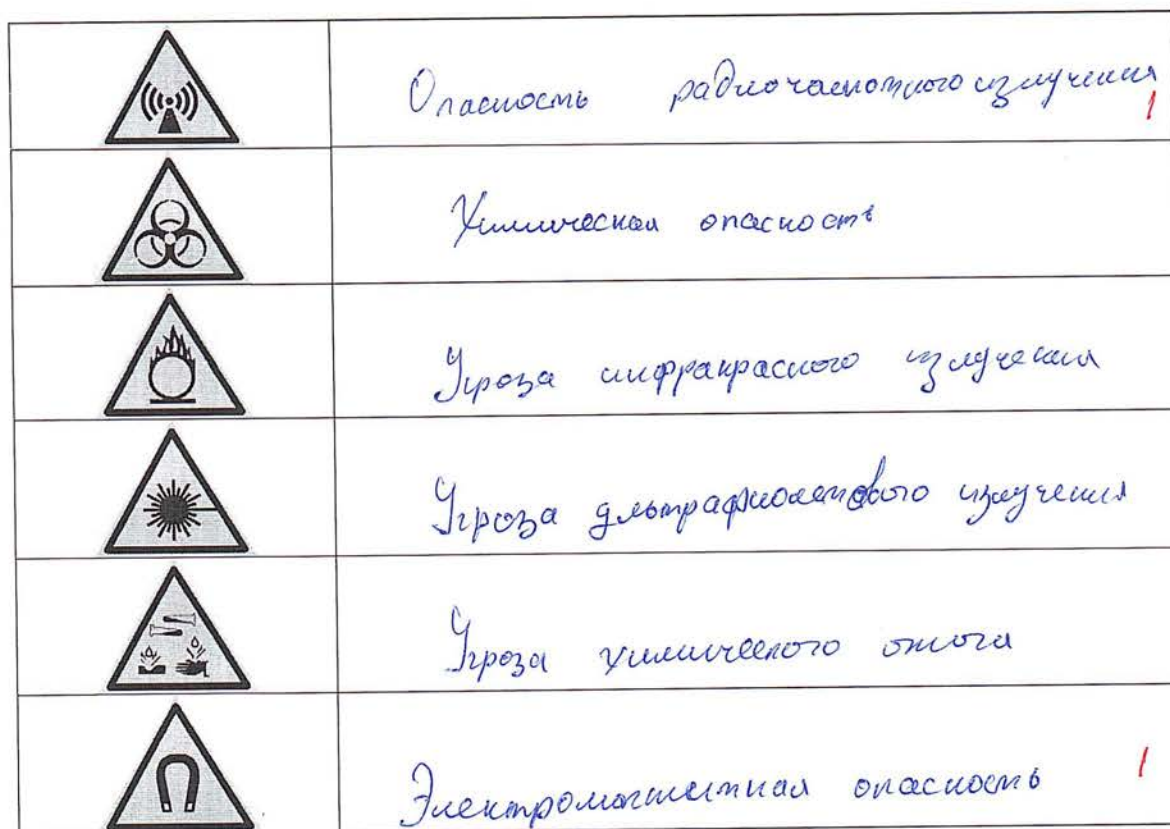 Опасность радиочастотного излучения
1
Химическая опасность
Угроза инфракрасного излучения
Угроза ультрафиолетового излучения
Угроза химического ожога
Электромагнитная опасность 1